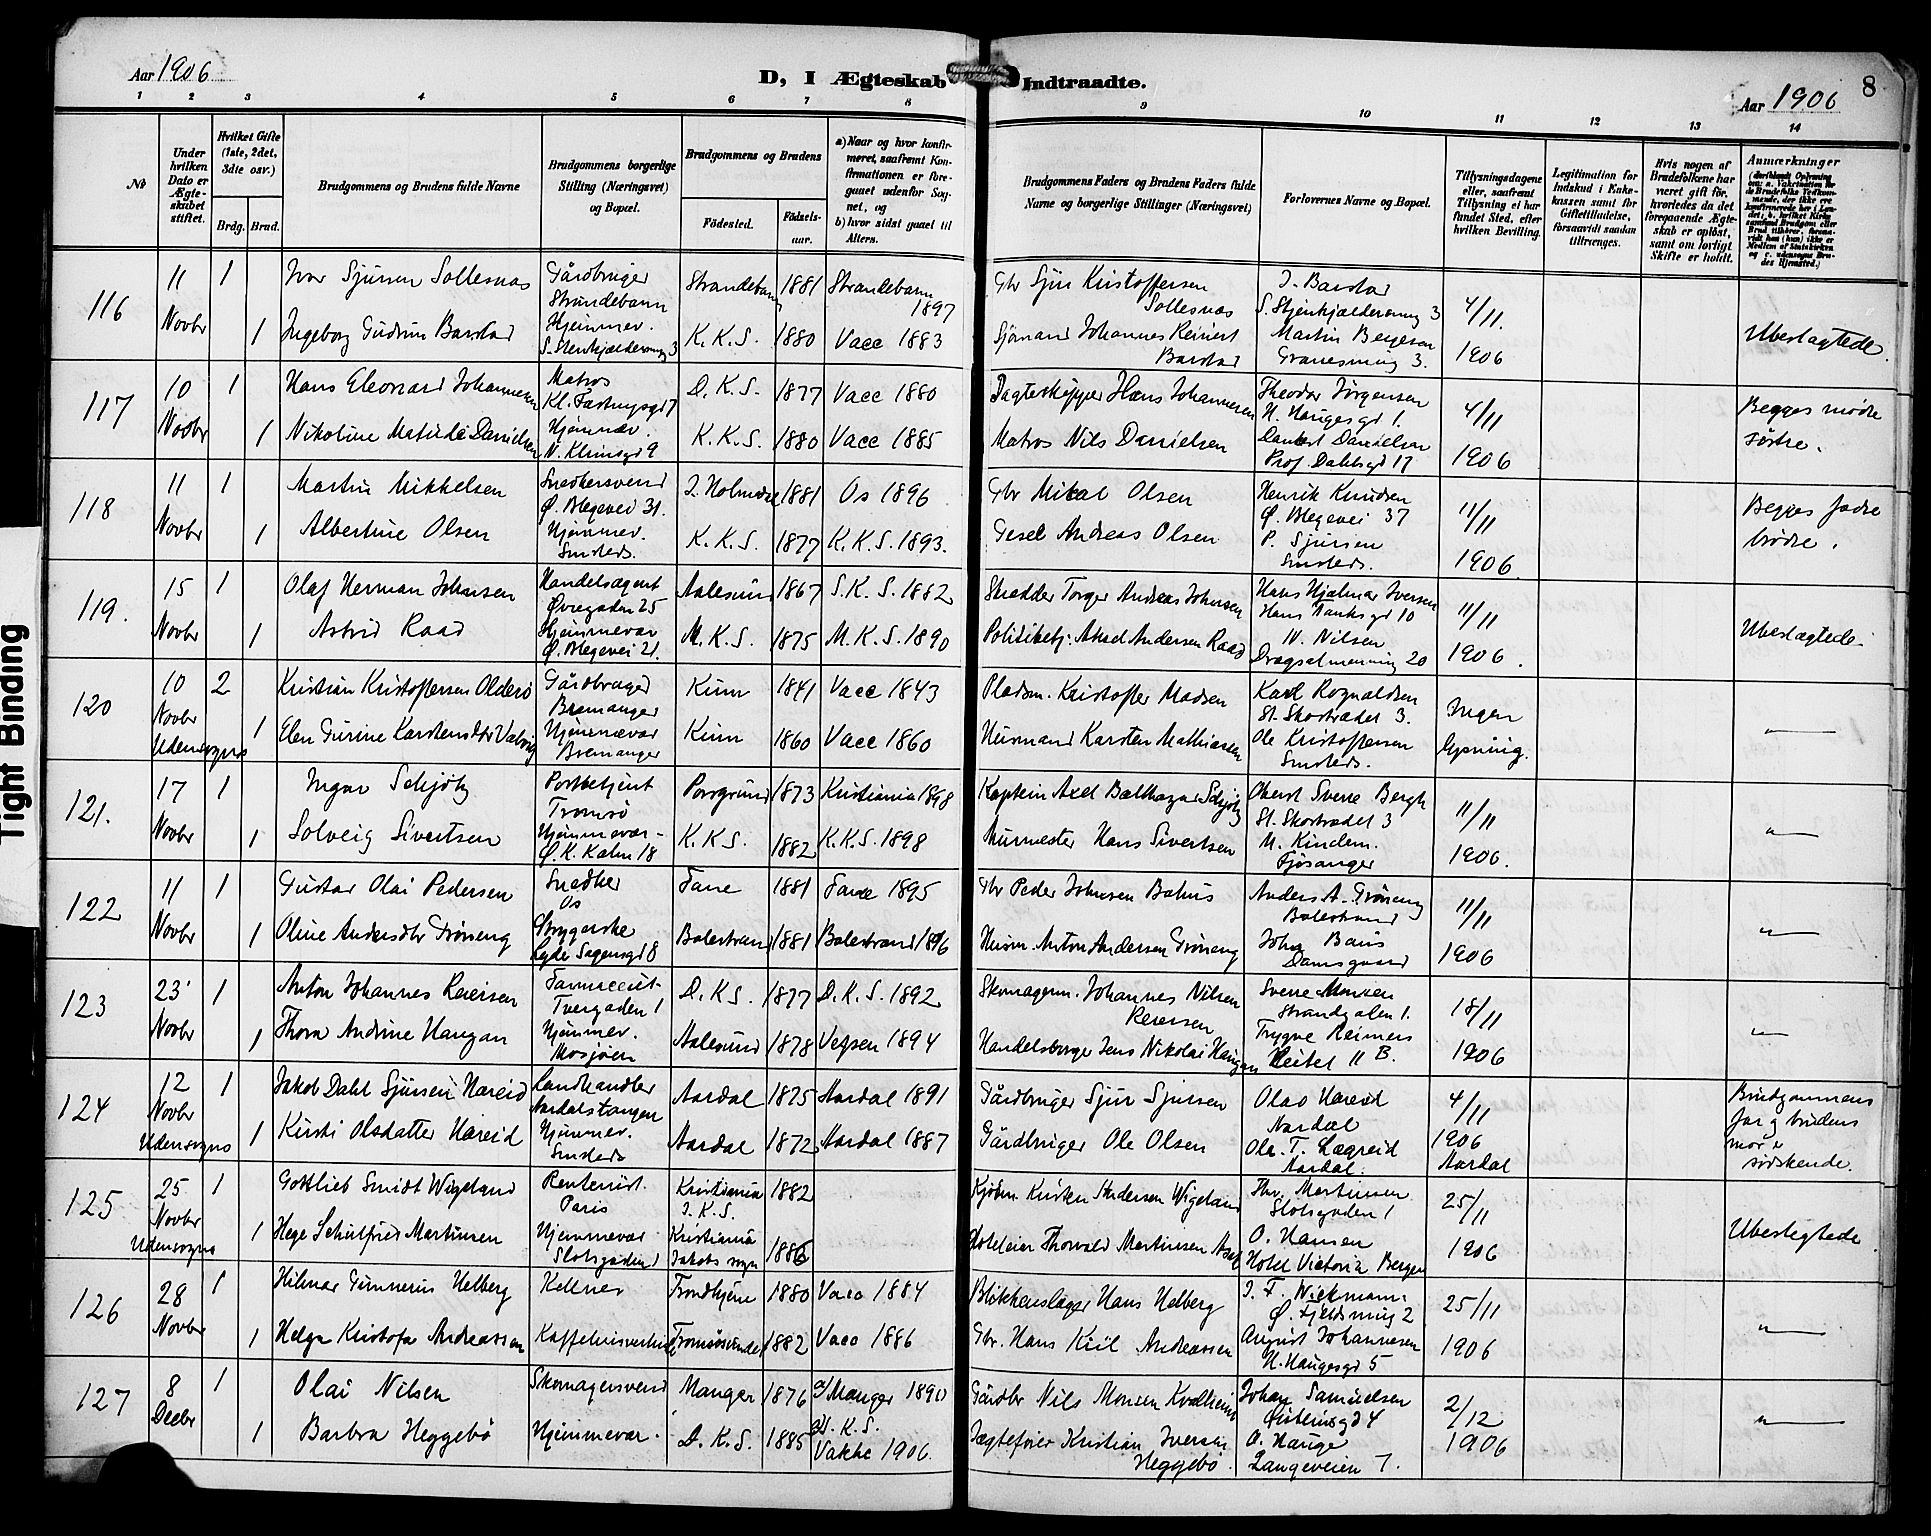 Aar 1906
D, I Ægteskab Indtraadte.
Aar 1906
8
1 2 3 4 5 6 7 8 9 10 11 12 13 14
No
Under hvilken Dato er Ægteskabet stiftet.
Hvilket Gifte (1ste, 2det, 3die osv.)
Brdg. Brud.
Brudgommens og Brudens fulde Navne
Brudgommens borgerlige Stilling (Næringsvei) og Bopæl.
Brudgommens og Brudens
Fødested. Fødselsaar.
a) Naar og hvor konfirmeret, saafremt Konfirmationen er foregaaet udenfor Sognet, og
b) hvor sidst gaaet til Alters.
Brudgommens Faders og Brudens Faders fulde Navne og borgerlige Stillinger (Næringsvei)
Forlovernes Navne og Bopæl.
Tillysningsdagene eller, saafremt Tillysning ei har fundet Sted, efter hvilken Bevilling.
Legitimation for Indskud i Enkekassen samt for Giftetilladelse, forsaavidt saadan tiltrænges.
Hvis nogen af Brudefolkene har været gift før, hvorledes da det foregaaende Ægteskab er opløst, samt om lovligt Skifte er holdt.
Anmærkninger
116
11 Novbr 1
Ivar Sjursen Sollesnæs
Gårdbruger Strandebarm
Strandebarm 1881 Strandebarm 1897
Gbr Sjur Kristoffersen Sollesnæs
J. Barstad
S. Stenkjældersmug 3
4/11 1906
Ubeslægtede.
1 Ingeborg Gudrun Barstad
Hjemmev.
S. Stenkjældersmug 3
K. K. S. 1880 Vacc 1883
Sjømand Johannes Reinert Barstad
Martin Bergesen
117
10 Novbr 1
Hans Eleonard Johannesen
Matros
Kl. Fæstningsgd 7
D. K. S. 1877 Vacc 1880
Jægteskipper Hans Johannesen
Theodor Jørgensen
H. Haugesgd 1.
4/11 1906
Begges mødre søstre.
1 Nikoline Matilde Danielsen
Hjemmev.
N. Klimsgd 9
K. K. S. 1880 Vacc 1885
Matros Nils Danielsen
Lambert Danielsen
Prof. Dahlsgd 17
118
11 Novbr 1
Martin Mikkelsen
Snedkersvend
Ø. Blegevei 31.
1881 Os 1896
Gbr Mikal Olsen
Henrik Knudsen
Ø. Blegevei 37
11/11 1906.
Begges fædre brødre.
1 Albertine Olsen
Hjemmev.
Smsteds.
K. K. S. 1877 K. K. S. 1893.
Gesel Andreas Olsen
P. Sjursen
Smsteds.
119.
15 Novbr 1
Olaf Herman Johnsen
Handelsagent
Øvregaden 25
Aalesund 1867 S. K. S. 1882
Skrædder Torger Andreas Johnsen
Hans Hjalmar Iversen
Hans Tanksgd 10
11/11 1906.
Ubeslægtede
1 Astrid Raad
Hjemmevær
Ø. Blegevei 21.
M. K. S. 1875 M. K. S. 1890
Politibetj. Aksel Andersen Raad
W. Nilsen
Dragsalmenning 20
120
10 Novbr Udensogns 2
Kristian Kristoffersen Olderø
Gårdbruger
Bremanger
Kinn 1841 Vacc 1843
Pladsm. Kristoffer Madsen
Karl Rognaldsen
St. Skostrædet 3.
Ingen lysning.
—"—
1 Elen Gurine Karstensdtr Valvig
Hjemmevær
Bremanger
Kinn 1860 Vacc 1860
Husmand Karsten Mathiassen
Ole Kristoffersen
Smsteds.
121.
17 Novbr 1
Ingar Schjøtz
Postbetjent
Tromsø
Porsgrund 1873 Kristiania 1898
Kaptein Axel Balthazar Schjøtz
Oberst Sverre Bergh
St. Skostrædet 3
11/11 1906.
—"—
1 Solveig Sivertsen
Hjemmevær
Ø. K. Kalm 18
K. K S. 1882 K. K. S. 1898
Murmester Hans Sivertsen
M. Kindem.
Fjøsanger
122
11 Novbr 1
Gustav Olai Pedersen
Snedker
Os
Fane 1881 Fane 1895
Gbr Peder Johnsen Bahus
Anders A. Grøneng
Balestrand
11/11 1906
—"—
1 Oline Andersdtr Grøneng
Strygerske
Lyder Sagensgd 8
Balestrand 1881 Balestrand 1896
Husm. Anton Andersen Grøneng
John Baus
Damsgaard
123
23 Novbr 1
Anton Johannes Reiersen
Farmaceut
Tvergaden 1
D. K S. 1877 D. K. S. 1892
Skomagerm. Johannes Nilsen Reiersen
Sverre Monsen
Strandgaten 1.
18/11 1906
—"—
1 Thora Andrine Haugan
Hjemmev.
Mosjøen
Aalesund 1878 Vefsen 1894
Handelsborger Jens Nikolai Haugan
Trygve Reimers
Veitet 11 B.
124
12 Novbr Udensogns 1
Jakob Dahl Sjursen Hareid
Landhandler
Aardalstangen
Aardal 1875 Aardal 1891
Gårdbruger Sjur Sjursen
Olav Hareid
Aardal
4/11 1906 Aardal
Brudgommens far og brudens mor er søskende.
1 Kirsti Olsdatter Hareid
Hjemmev.
Smsteds
Aardal 1872 Aardal 1887
Gårdbruger Ole Olsen
Ole. T. Lægreid
Aardal.
125
25 Novbr Udensogns 1
Gottlieb Smidt Wigeland
Rentenist.
Paris
Kristiania J. K. S. 1882
Kjøbm. Kirsten Andersen Wigeland
Thv. Martinsen
Slotsgaden 1
25/11 1906
Ubeslægtede
1 Hege Schulfred Martinsen
Hjemmevær
Slotsgaden 1
Kristiania Jakobs sogn 1886
Hoteleier Thorvald Martinsen
O. Hansen
Hotel Victoria Bergen
126
28 Novbr 1
Hilmar Gunnerus Helberg
Kellner
Trondhjem 1880 Vacc 1884
Blikkenslager Hans Helberg
J. F. Wiekmann
Ø. Fjeldsmug 2
25/11 1906
—"—
1 Helga Kristofa Andreassen
Tromsøsundet 1882 Vacc 1886
Gbr. Hans Kiil Andreassen
August Johannesen
H. Haugesgd 5
127
8 Decbr 1
Olai Nilsen
Skomagersvend
Manger 1876 a/ Manger 1890
Gårdbr Nils Monsen Kvalheim
Johan Samuelsen
Øisteinsgd 4
2/12 1906
—"—
1 Barbra Heggebø
Hjemmevær.
D. K. S. 1885 D. K. S. Vakke 1906.
Jægtefører Kristian Iversen Heggebø
O. Hauge
Langeveien 7.
Tight Binding